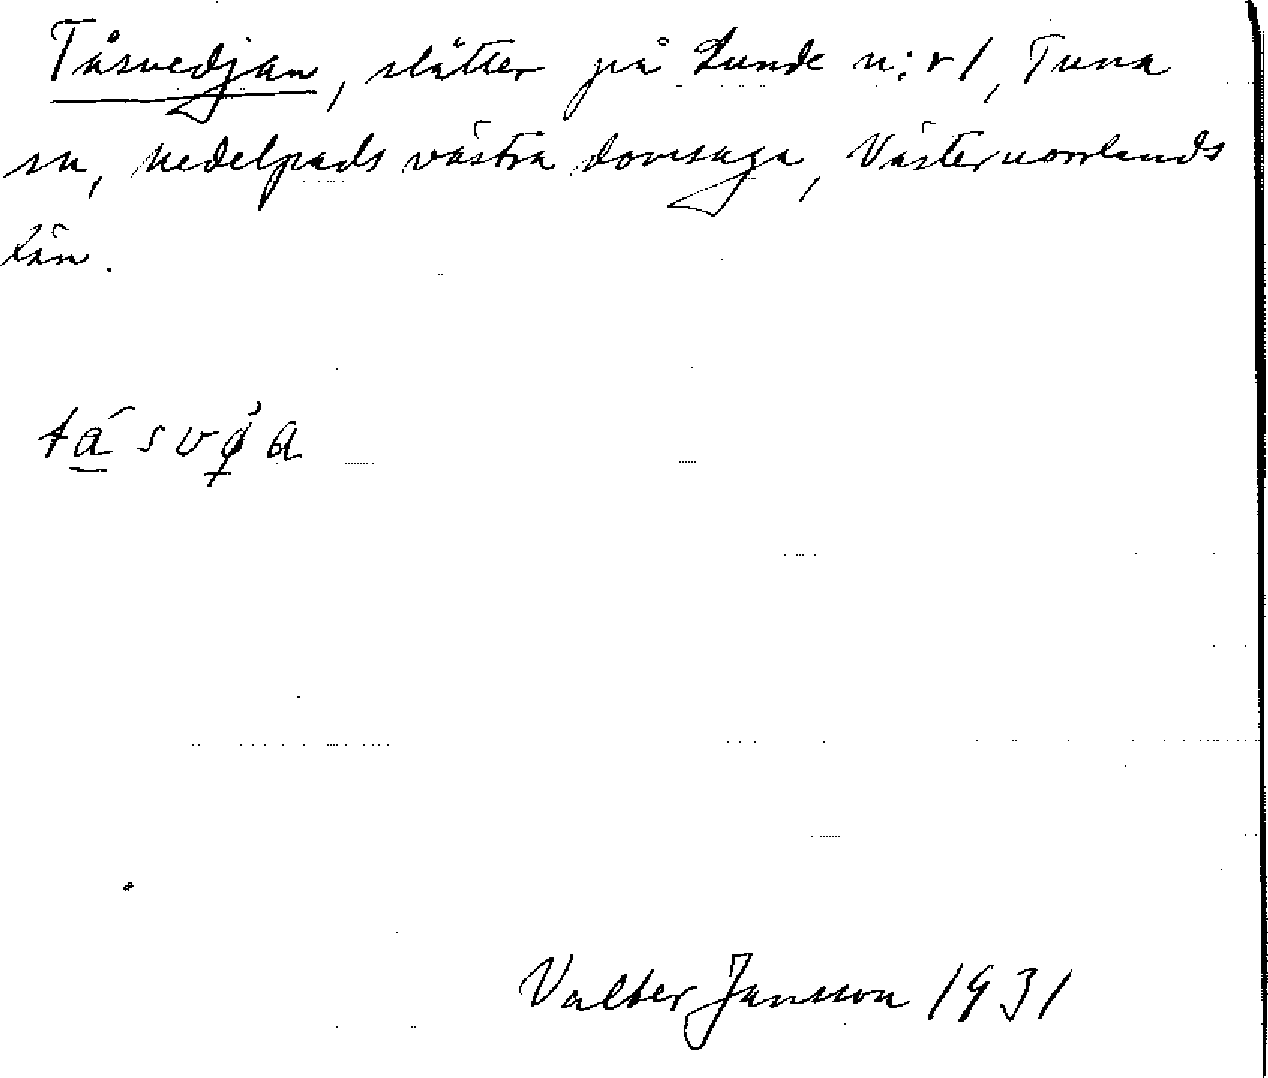 Tåsvedjan, slåtter på Lunde n:r 1, Tuna
sn, Medelpads västra domsaga, Västernorrlands
län.
Valter Jansson 1931